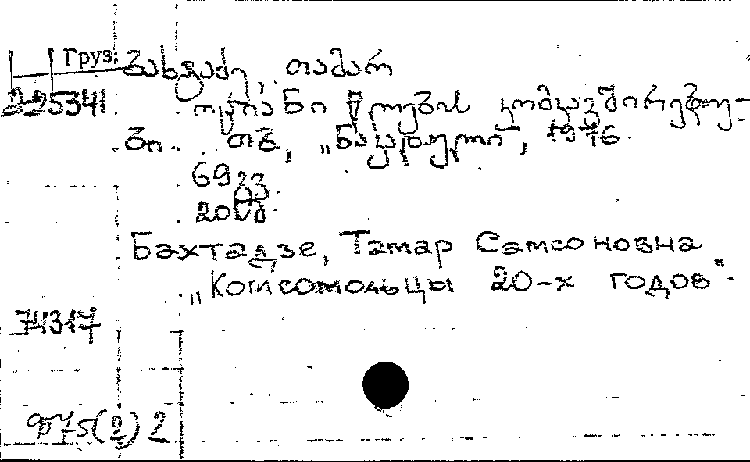 Груз.
ბახტაძე, თამარ
225341 ოციანი წლების კომკავშირელე-
ბი. თბ., „ნაკადული", 1976.
69 გვ.
20სმ.
Бахтадзе, Тамар Самсоновна
„Комсомольцы 20-х годов".
74317
9П75(2)2